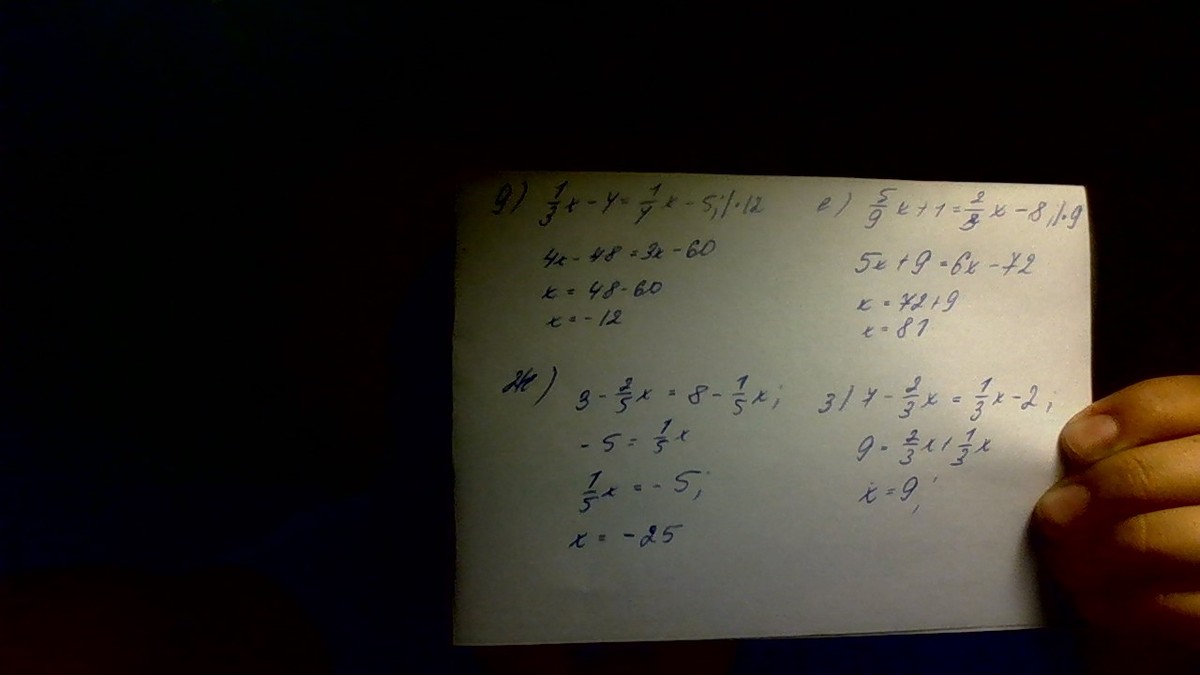 д) 1/3x - 4 = 1/4x - 5; |·12
4x - 48 = 3x - 60
x = 48 - 60
x = -12
е) 5/9x + 1 = 2/3x - 8; |·9
5x + 9 = 6x - 72
x = 72 + 9
x = 81
ж) 3 - 2/5x = 8 - 1/5x;
-5 = 1/5x
1/5x = -5;
x = -25
з) 7 - 2/3x = 1/3x - 2;
9 = 2/3x + 1/3x
x = 9;